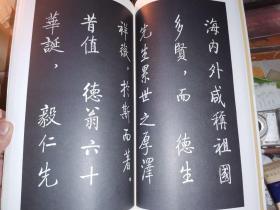 海內外咸稱祖國
多賢，而 德生
先生累世之厚澤
祥徵，於斯而著。
昔值 德翁六十
華誕， 毅仁先